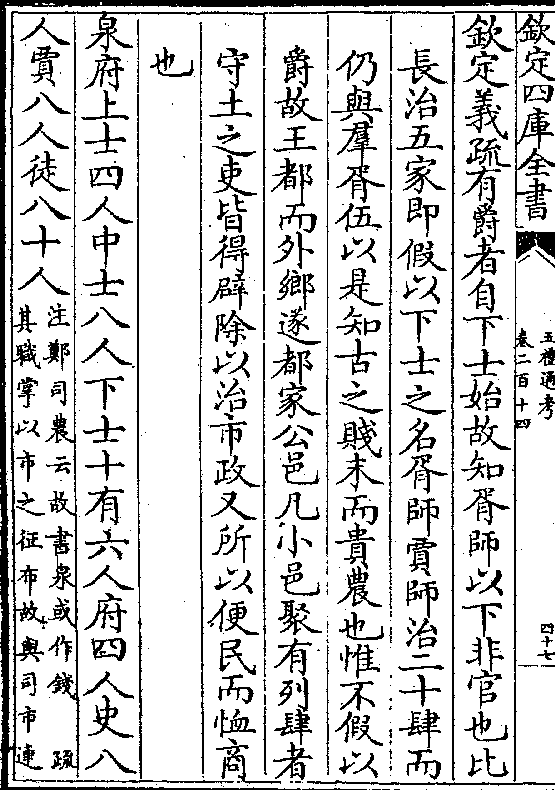 欽定四庫全書
五禮通考
卷二百十四
四十七
欽定義疏有爵者自下士始故知胥師以下非官也比
長治五家即假以下士之名胥師賈師治二十肆而
仍與羣胥伍以是知古之賤末而貴農也惟不假以
爵故王都而外鄉遂都家公邑凡小邑聚有列肆者
守土之吏皆得辟除以治市政又所以便民而恤商
也
泉府上士四人中士八人下士十有六人府四人史八
人賈八人徒八十人
注鄭司農云故書泉或作錢 疏
其職掌以市之征布故與司市連